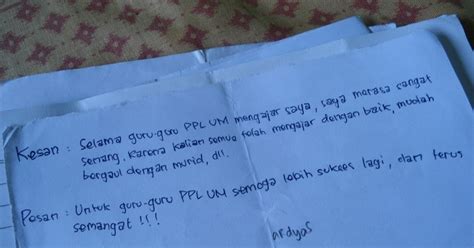 Kesan : Selama guru-guru PPL UM mengajar saya, saya merasa sangat
senang. Karena kalian semua telah mengajar dengan baik, mudah
bergaul dengan murid, dll.
Pesan : Untuk guru-guru PPL UM semoga lebih sukses lagi, dan terus
semangat !!!
ardyas